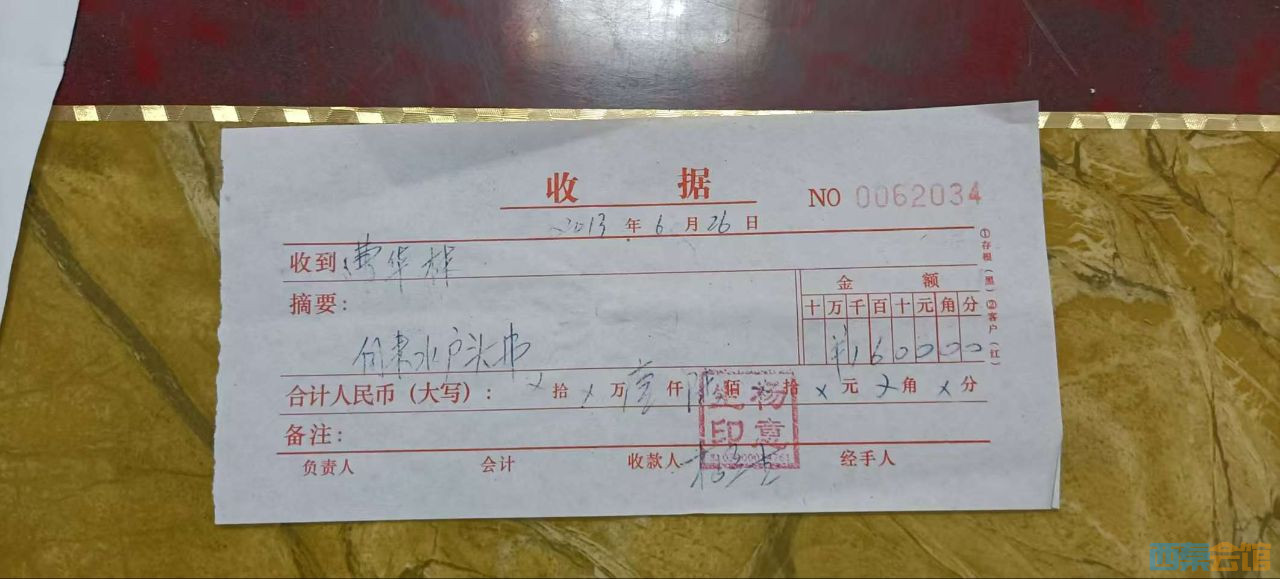 收据
NO 0062034
2013 年 6 月 26 日
收到 曹华林
摘要：
金额
十 万 千 百 十 元 角 分
¥ 1 6 0 0 0 0
水户头
合计人民币（大写）： × 拾 × 万 壹 仟 陆 佰 拾 × 元 × 角 × 分
备注：
负责人 会计 收款人 经手人
杨意印
①存根（黑）②客户（红）
西秦会馆